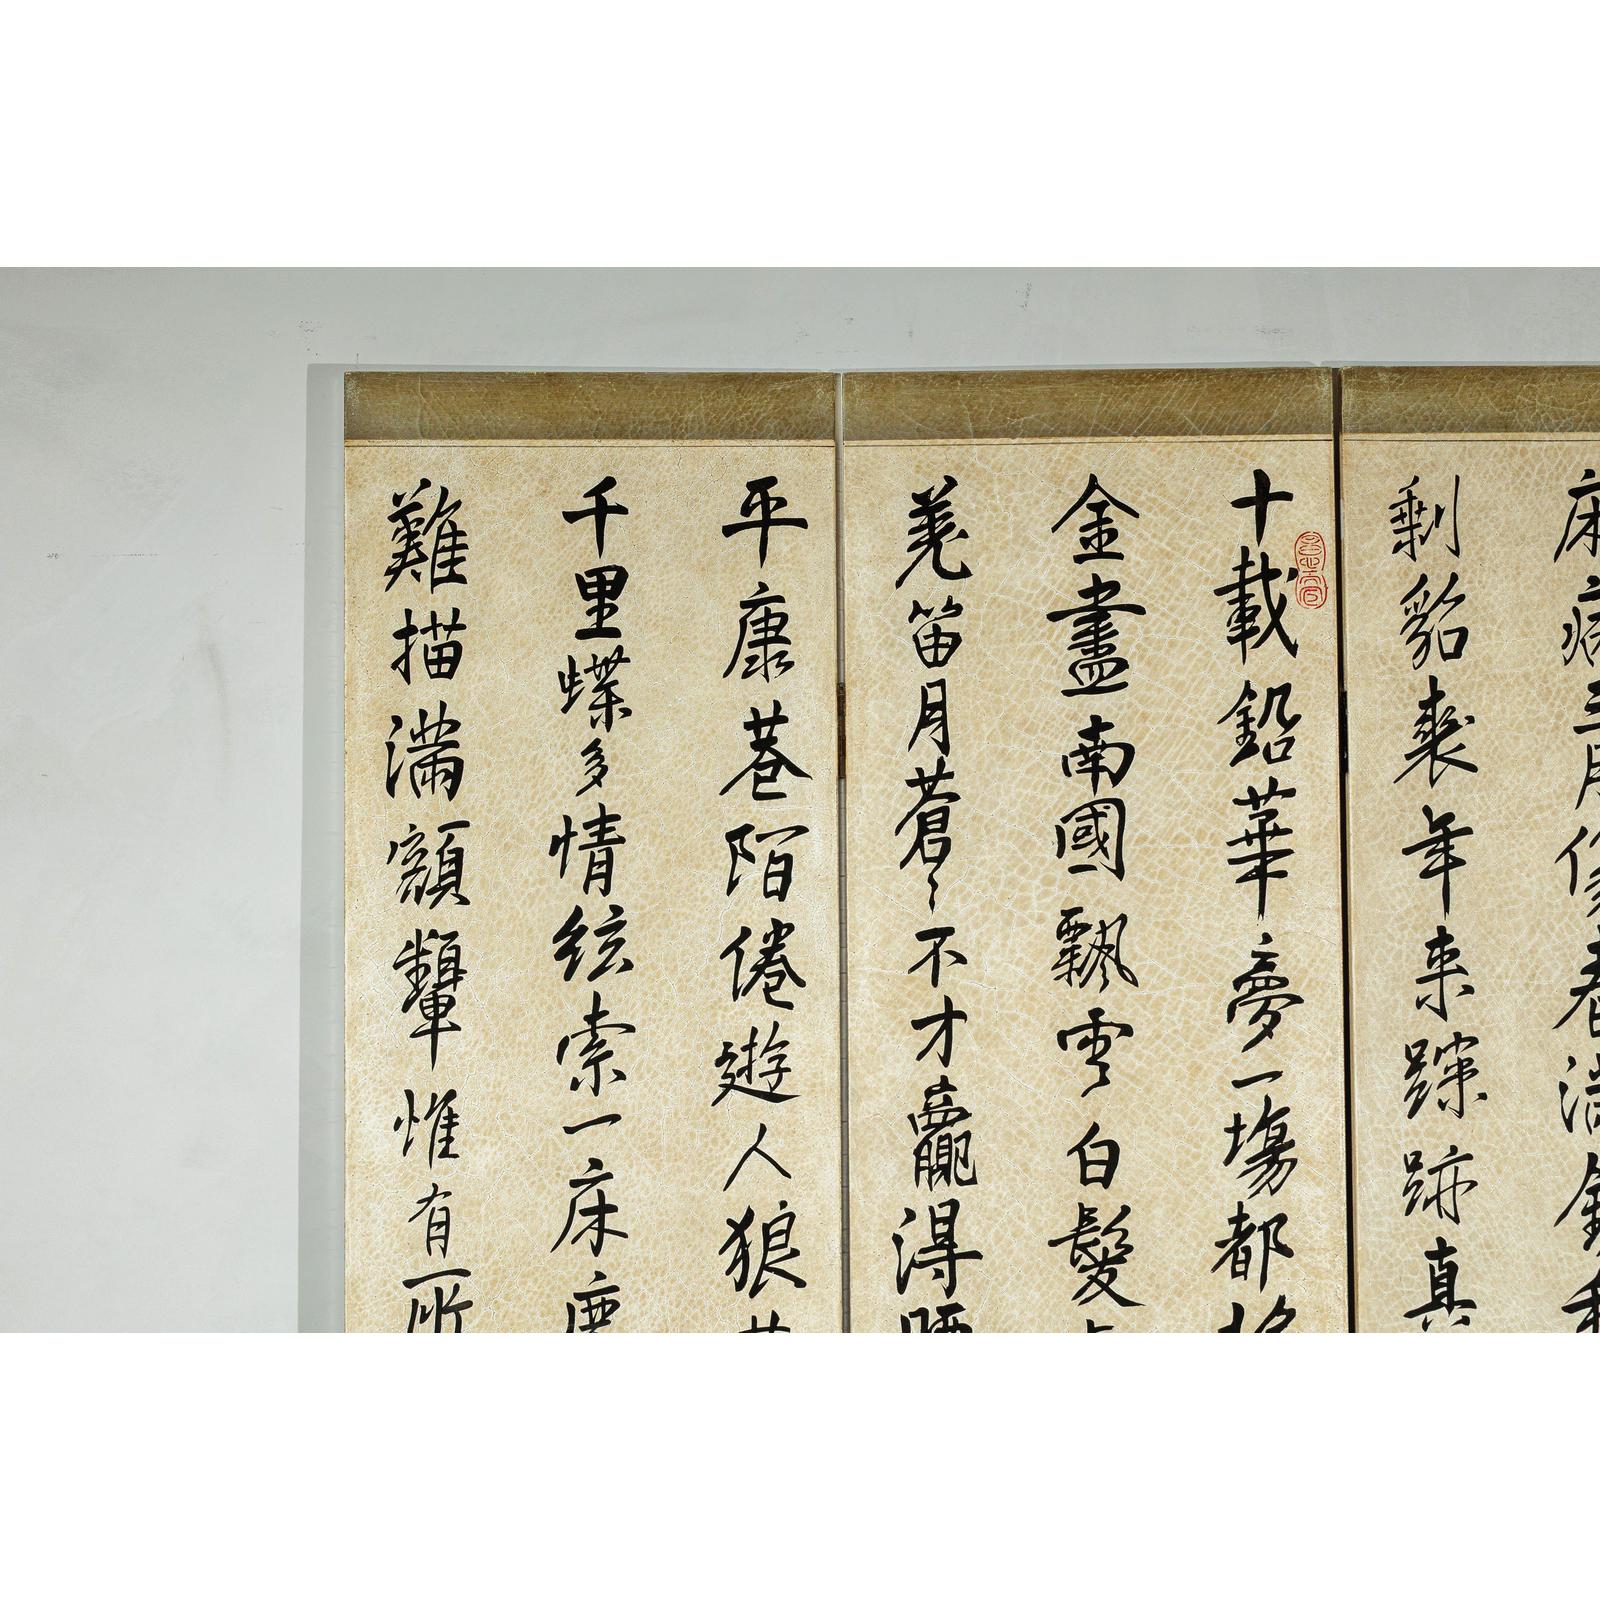 床病三月像春滿
剩貂裘年来蹤跡真
十載鉛華夢一場都
金盡南國飄零白髮
羌笛月蒼〻不才贏得
平康巷陌倦遊人狼
千里蝶多情絃索一床
難描滿額顰惟有一